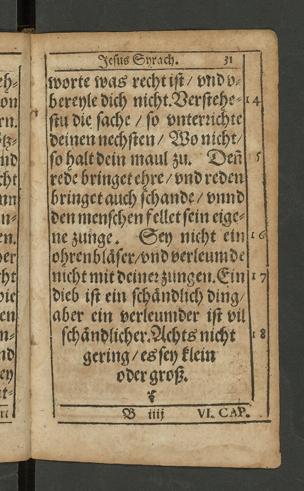 Jesus Syrach. 31
worte was recht ist / vnd v-
bereyle dich nicht. Verstehe- 14
stu die sache / so vnterrichte
deinen nechsten / Wo nicht /
so halt dein maul zu. Deñ 5
rede bringet ehre / vnd reden
bringet auch schande / vnnd
den menschen fellet sein eige-
ne zunge. Sey nicht ein 16
ohrenbläser / vnd verleumde
nicht mit deiner zungen. Ein 17
dieb ist ein schändlich ding /
aber ein verleumder ist vil
schändlicher. Achts nicht 18
gering / es sey klein
oder groß.
B iiij VI. CAP.